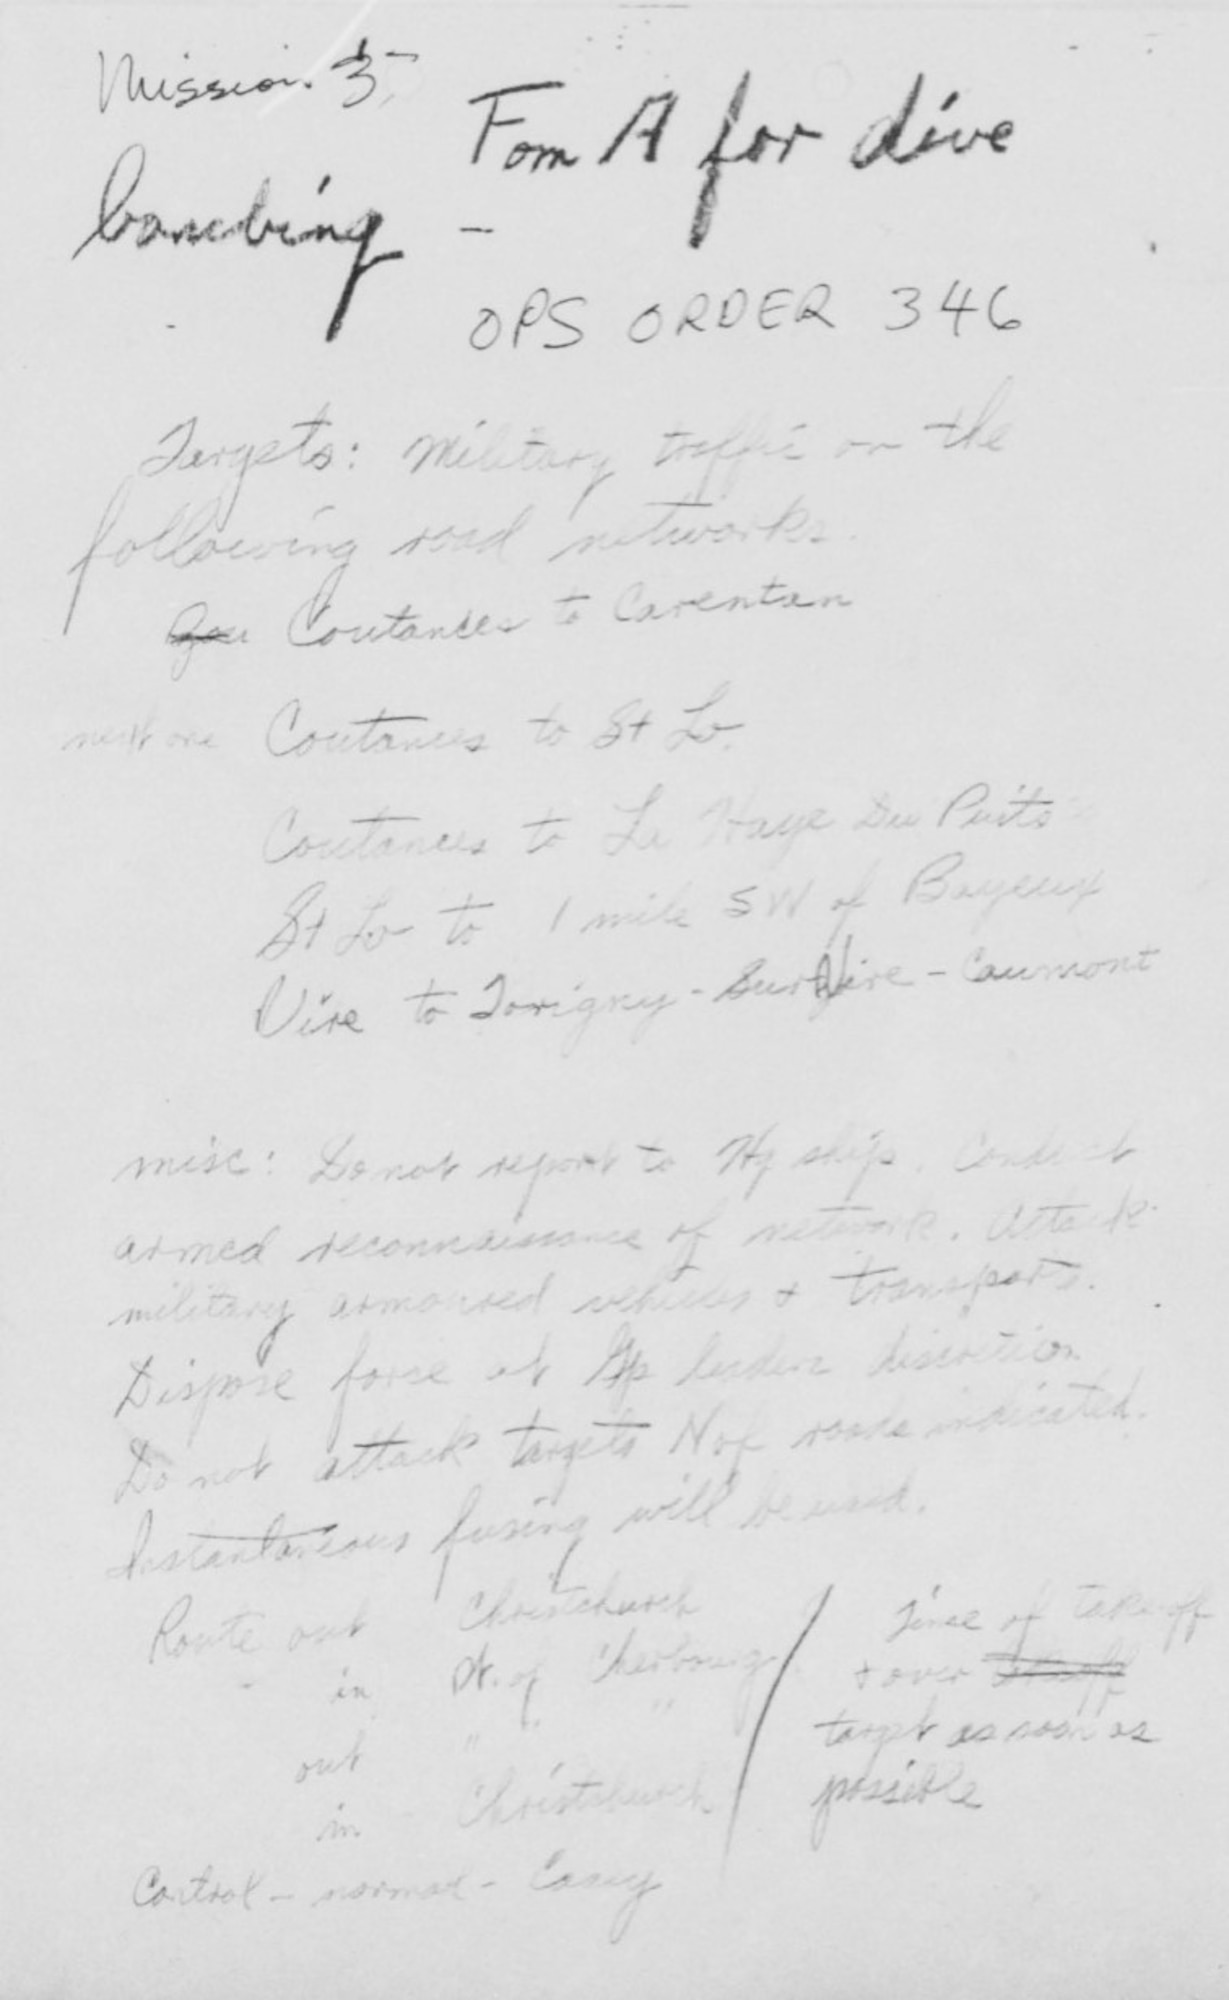 Mission 3,
Fom A for dive
bombing -
OPS ORDER 346
Targets: Military traffic on the
following road networks.
Coutances to Carentan
next one Coutances to St Lo.
Coutances to La Haye Du Puits
St Lo to 1 mile SW of Bayeux
Vire to Torigny-Sur Vire - Caumont
misc: Do not report to Hq ship. Conduct
armed reconnaissance of network. Attack
military armoured vehicles + transports.
Dispose force at Gp leaders discretion
Do not attack targets N of roads indicated.
Instantaneous fusing will be used.
Route out Christchurch
in Pt. of Cherbourg
out " " "
in - Christchurch
Time of take off
+ over
target as soon as
possible
Control - normal - Casey